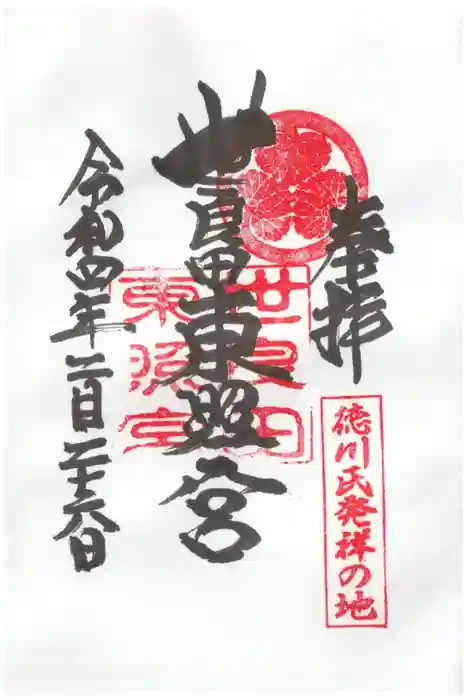 奉拝
徳川氏発祥の地
世良田東照宮
世良田
東照宮
令和四年二月二十六日